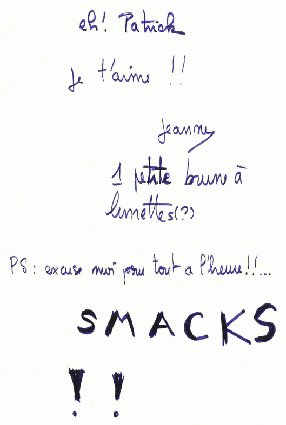 eh! Patrick
Je t'aime !!
Jeanne
1 petite brune à
lunettes(?)
PS: excuse moi pour tout a l'heure!!...
SMACKS
!!